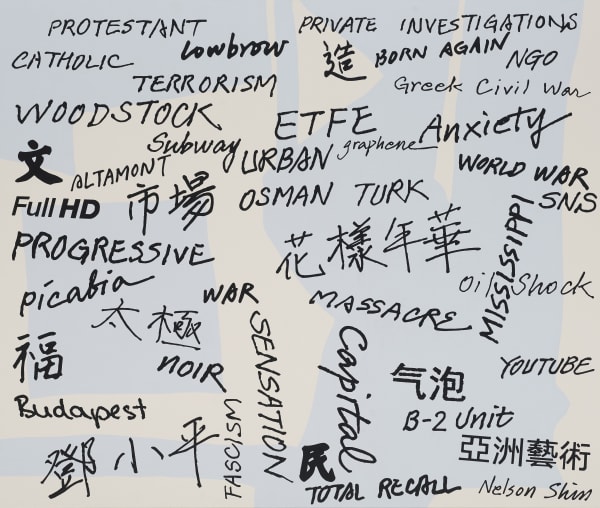 PROTESTANT
PRIVATE INVESTIGATIONS
CATHOLIC
Lowbrow
造
BORN AGAIN
NGO
TERRORISM
Greek Civil War
WOODSTOCK
ETFE
Anxiety
Subway
graphene
文
ALTAMONT
URBAN
WORLD WAR
Full HD
市場
OSMAN TURK
SNS
PROGRESSIVE
花樣年華
MISSISSIPPI
picabia
WAR
Oil Shock
太極
MASSACRE
福
NOIR
SENSATION
Capital
气泡
YOUTUBE
Budapest
B-2 Unit
鄧小平
FASCISM
民
亞洲藝術
TOTAL RECALL
Nelson Shin